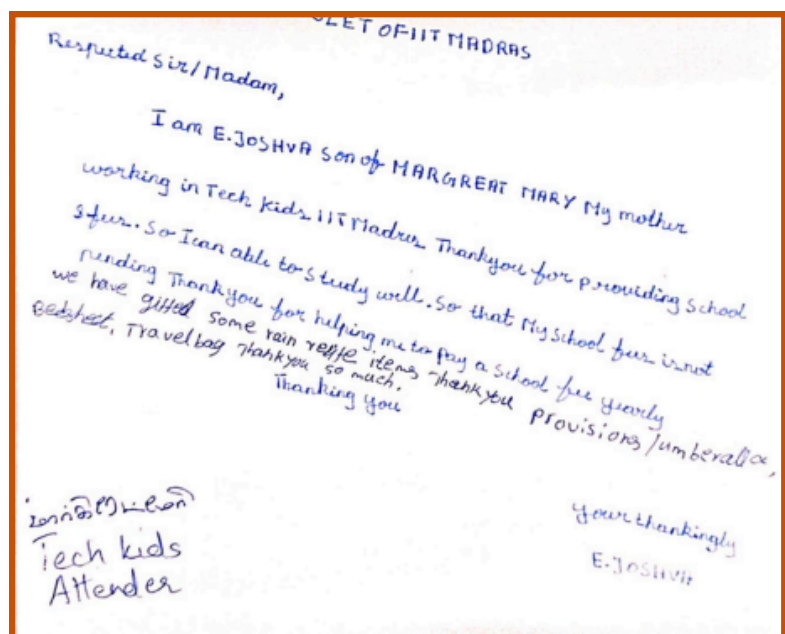 OF IIT MADRAS
Respected Sir/Madam,
I am E.JOSHVA son of MARGREAT MARY My mother
working in Tech kids IIT Madras Thankyou for providing school
fees. So I can able to study well. So that My school fees is not
pending Thankyou for helping me to pay a school fee yearly
we have gifted some rain items Thank you provisions/umberalla,
Bedsheet, Travelbag Thankyou so much.
Thanking you
Your thankingly
E.JOSHVA
Tech kids
Attender